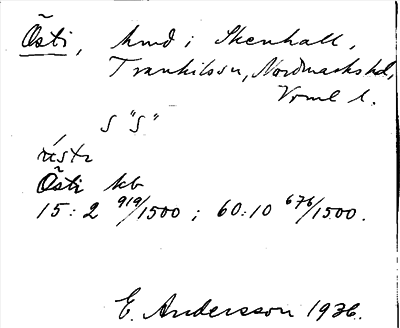 Östi, hmd i Skenhall,
Trankilssn, Nordmarks hd,
Vrml l.
s "s"
Östi kb
15:2 919/1500 ; 60:10 676/1500.
E. Andersson 1936.